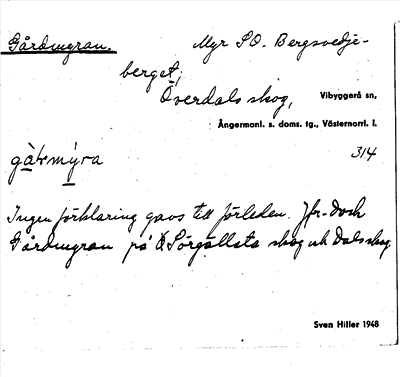 Gårdmyran. Myr SO. Bergsvedje-
berget,
Överdals skog, Vibyggerå sn,
Ångermanl. s. doms. tg., Västernorrl. l.
gå̀ṣmýra 314
Ingen förklaring gavs till förleden. Jfr dock
Gårdmyran på Sörgällsta skog och Dals skog
Sven Hiller 1948